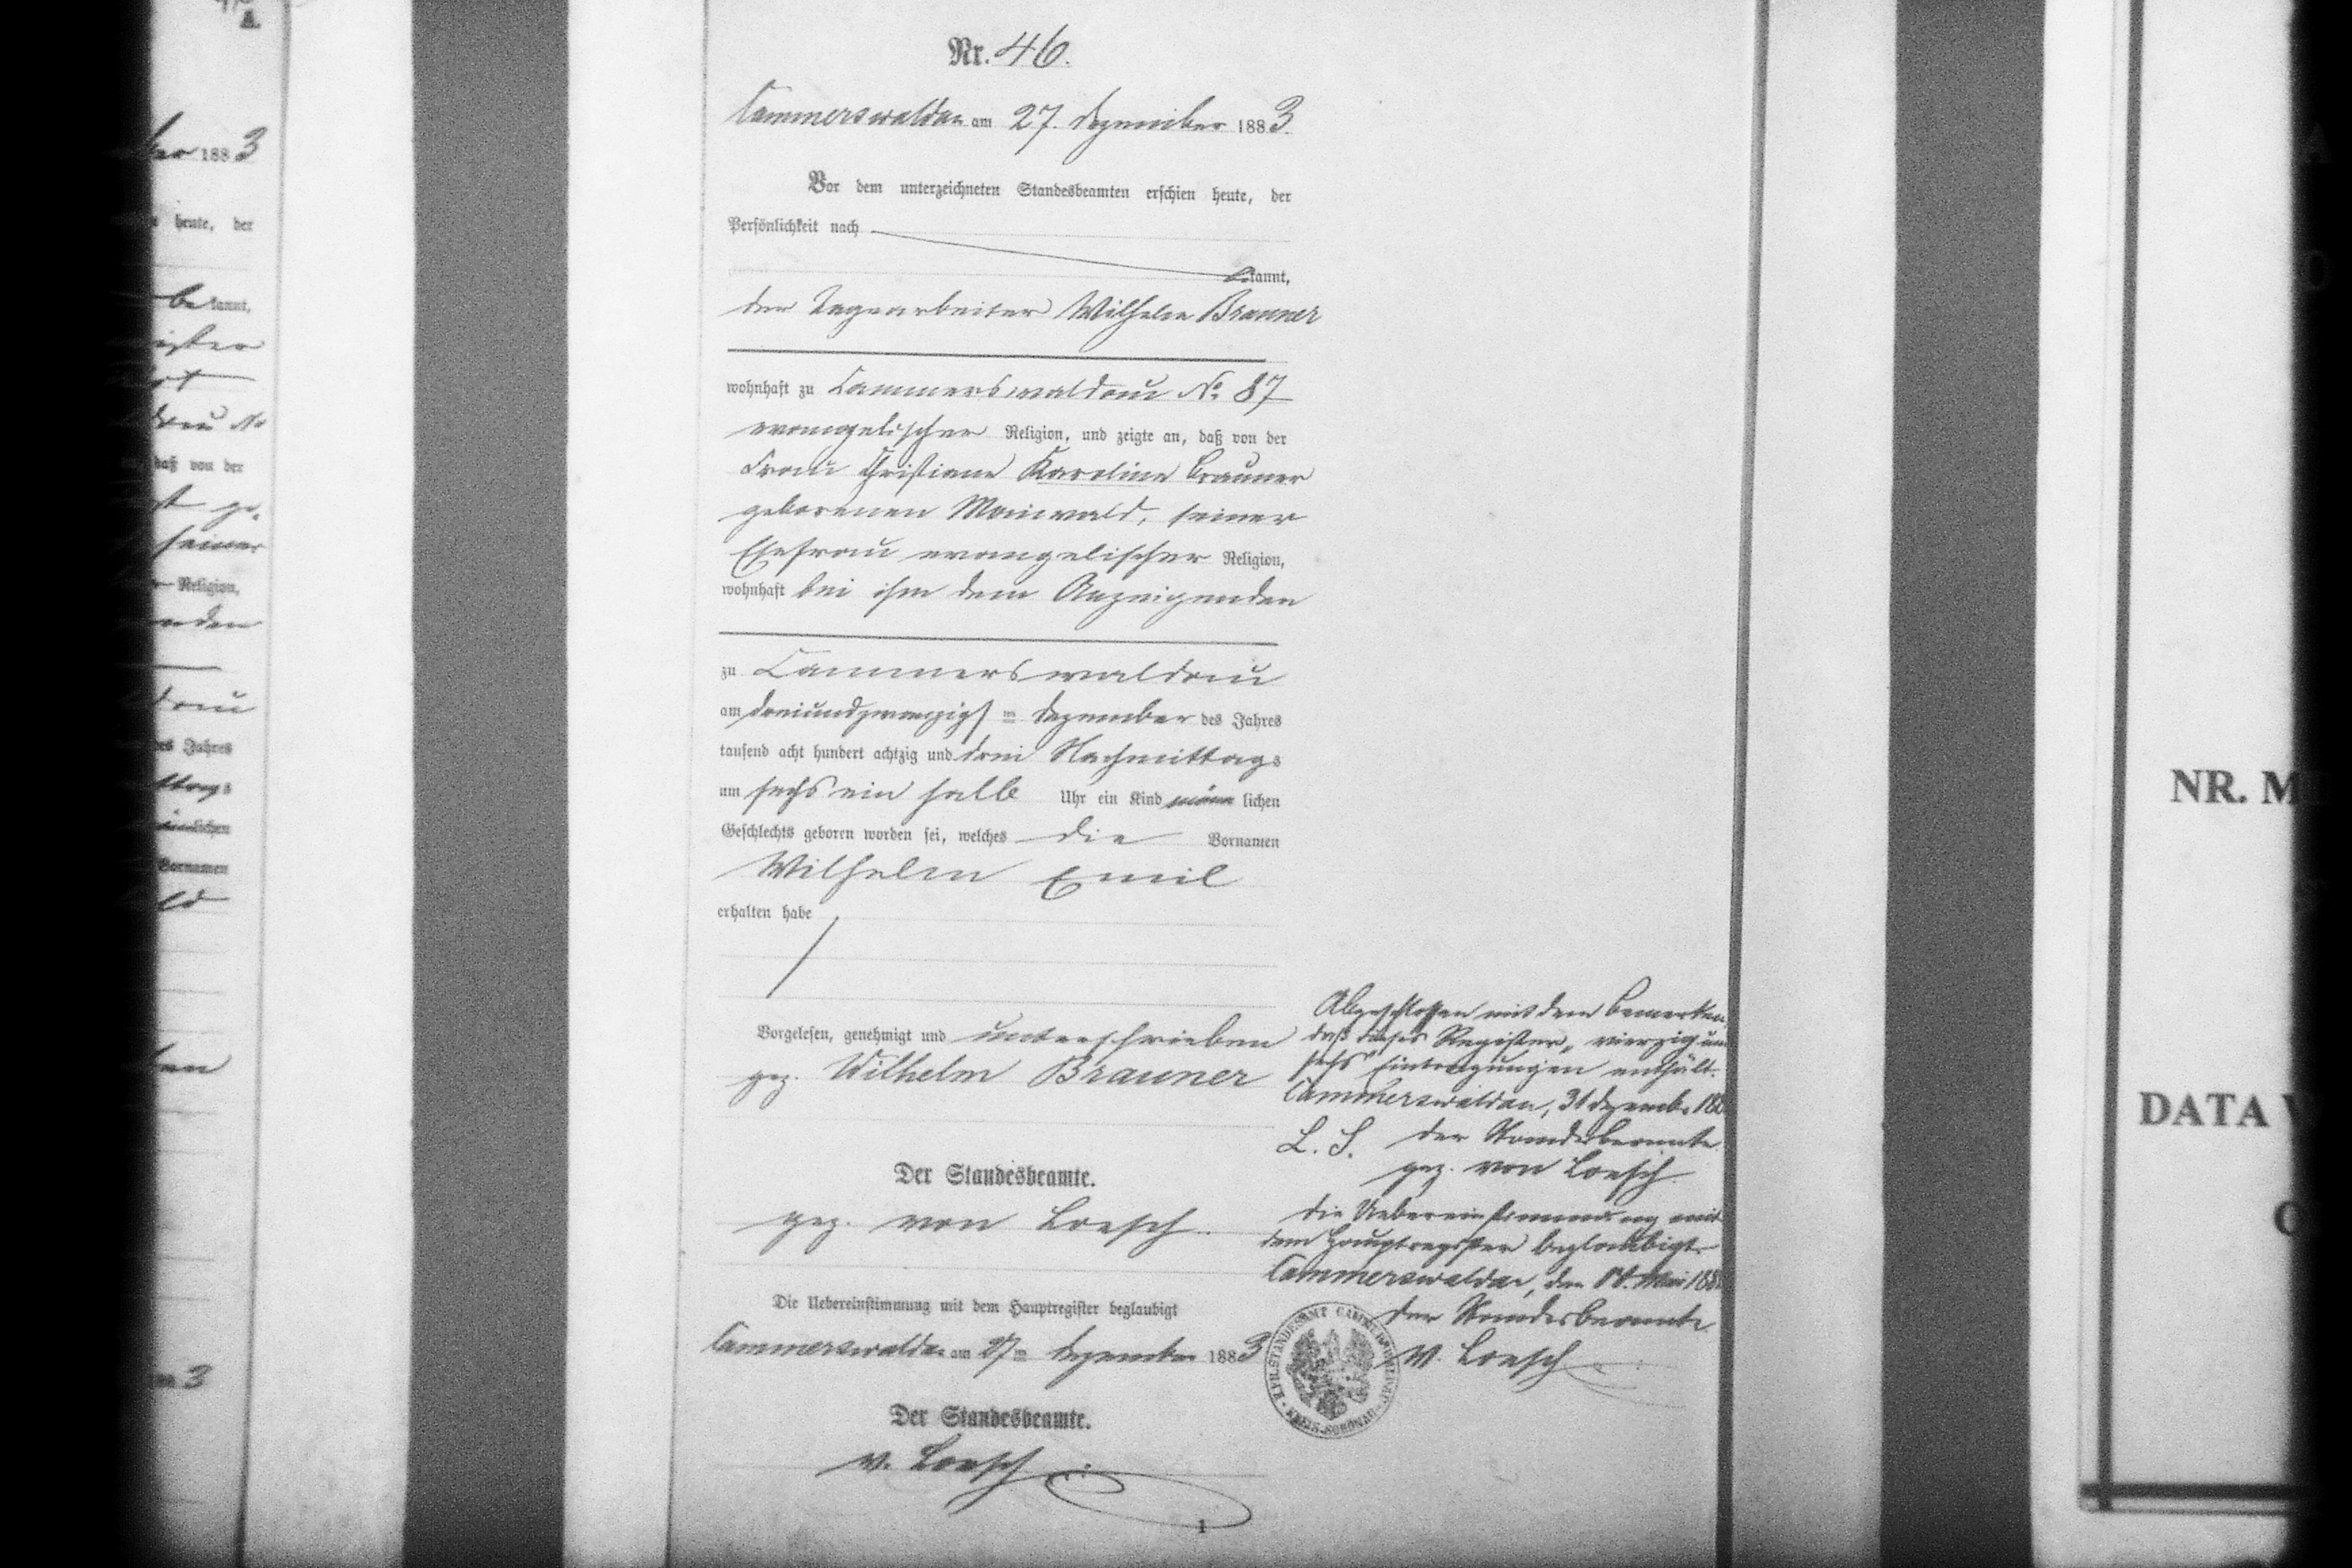 Nr. 46.
Cammerswaldau am 27. Dezember 1883.
Vor dem unterzeichneten Standesbeamten erschien heute, der
Persönlichkeit nach
kannt,
der Tagearbeiter Wilhelm Brauner
wohnhaft zu Cammerswaldau No 87
evangelischer Religion, und zeigte an, daß von der
Frau Christiane Karoline Brauner
geborenen Maiwald, seiner
Ehefrau evangelischer Religion,
wohnhaft bei ihm dem Anzeigenden
zu Cammerswaldau
am dreiundzwanzigsten Dezember des Jahres
tausend acht hundert achtzig und drei Nachmittags
um sechs ein halb Uhr ein Kind männlichen
Geschlechts geboren worden sei, welches die Vornamen
Wilhelm Emil
erhalten habe
Vorgelesen, genehmigt und unterschrieben
gez. Wilhelm Brauner
Der Standesbeamte.
gez. von Loesch.
Die Uebereinstimmung mit dem Hauptregister beglaubigt
Cammerswaldau am 27ten Dezember 1883
Der Standesbeamte.
v. Loesch
1
Abgeschlossen mit dem Bemerken,
daß dieses Register „vierzig und
sechs" Eintragungen enthält.
Cammerswaldau, 31 Dezember 188
L. S. Der Standesbeamte
gez. von Loesch
Die Uebereinstimmung mit
dem Hauptregister beglaubigt.
Cammerswaldau, den Mai 188
Der Standesbeamte
v. Loesch
STANDESAMT CAMMERSWALDAU
KREIS SCHÖNAU
1883
heute, der
bekannt,
daß von der
seiner
Religion,
des Jahres
Vornamen
3
NR. M
DATA